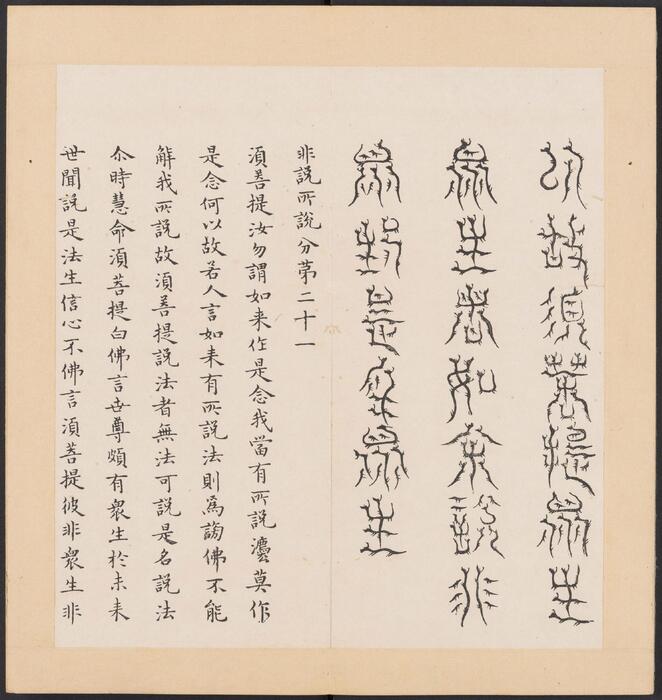 以故須菩提眾生
眾生者如來說非
眾生是名眾生
非説所説分苐二十一
須菩提汝勿謂如来作是念我當有所説灋莫作
是念何以故若人言如来有所説法則為謗佛不能
解我所説故須菩提説法者無法可説是名説法
尒時慧命須菩提白佛言世尊頗有衆生於未来
世聞説是法生信心不佛言須菩提彼非衆生非